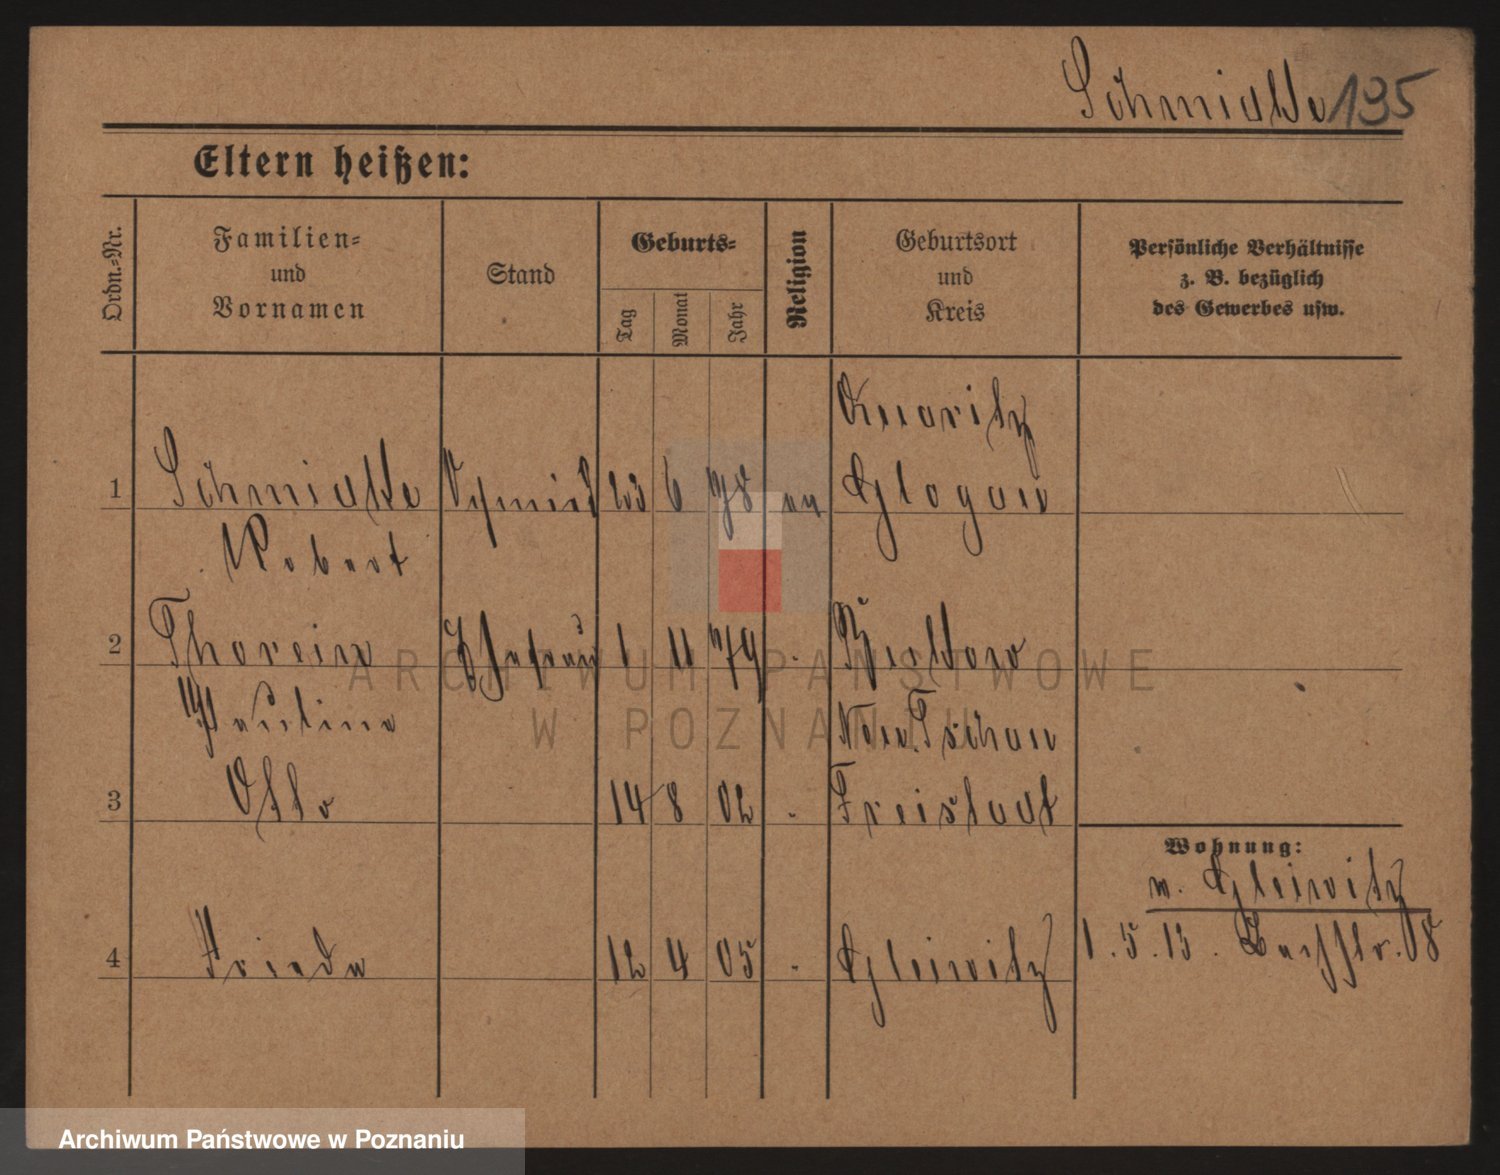 Schmialke 195
Eltern heißen:
Ordn.-Nr.
Familien-
und
Vornamen
Stand
Geburts-
Tag
Monat
Jahr
Religion
Geburtsort
und
Kreis
Persönliche Verhältnisse
z. B. bezüglich
des Gewerbes usw.
Quaritz
1 Schmialke Schmied 23 6 78 ev Glogau
Robert
2 Thorein Ehefrau 1 11 79 "
Pauline Neu Tschau
3 Otto 14 8 02 " Freistadt
Wohnung:
n. Gleiwitz
1.5.13. 08
4 Frieda 12 4 05 " Gleiwitz
ARCHIWUM PAŃSTWOWE
W POZNANIU
Archiwum Państwowe w Poznaniu